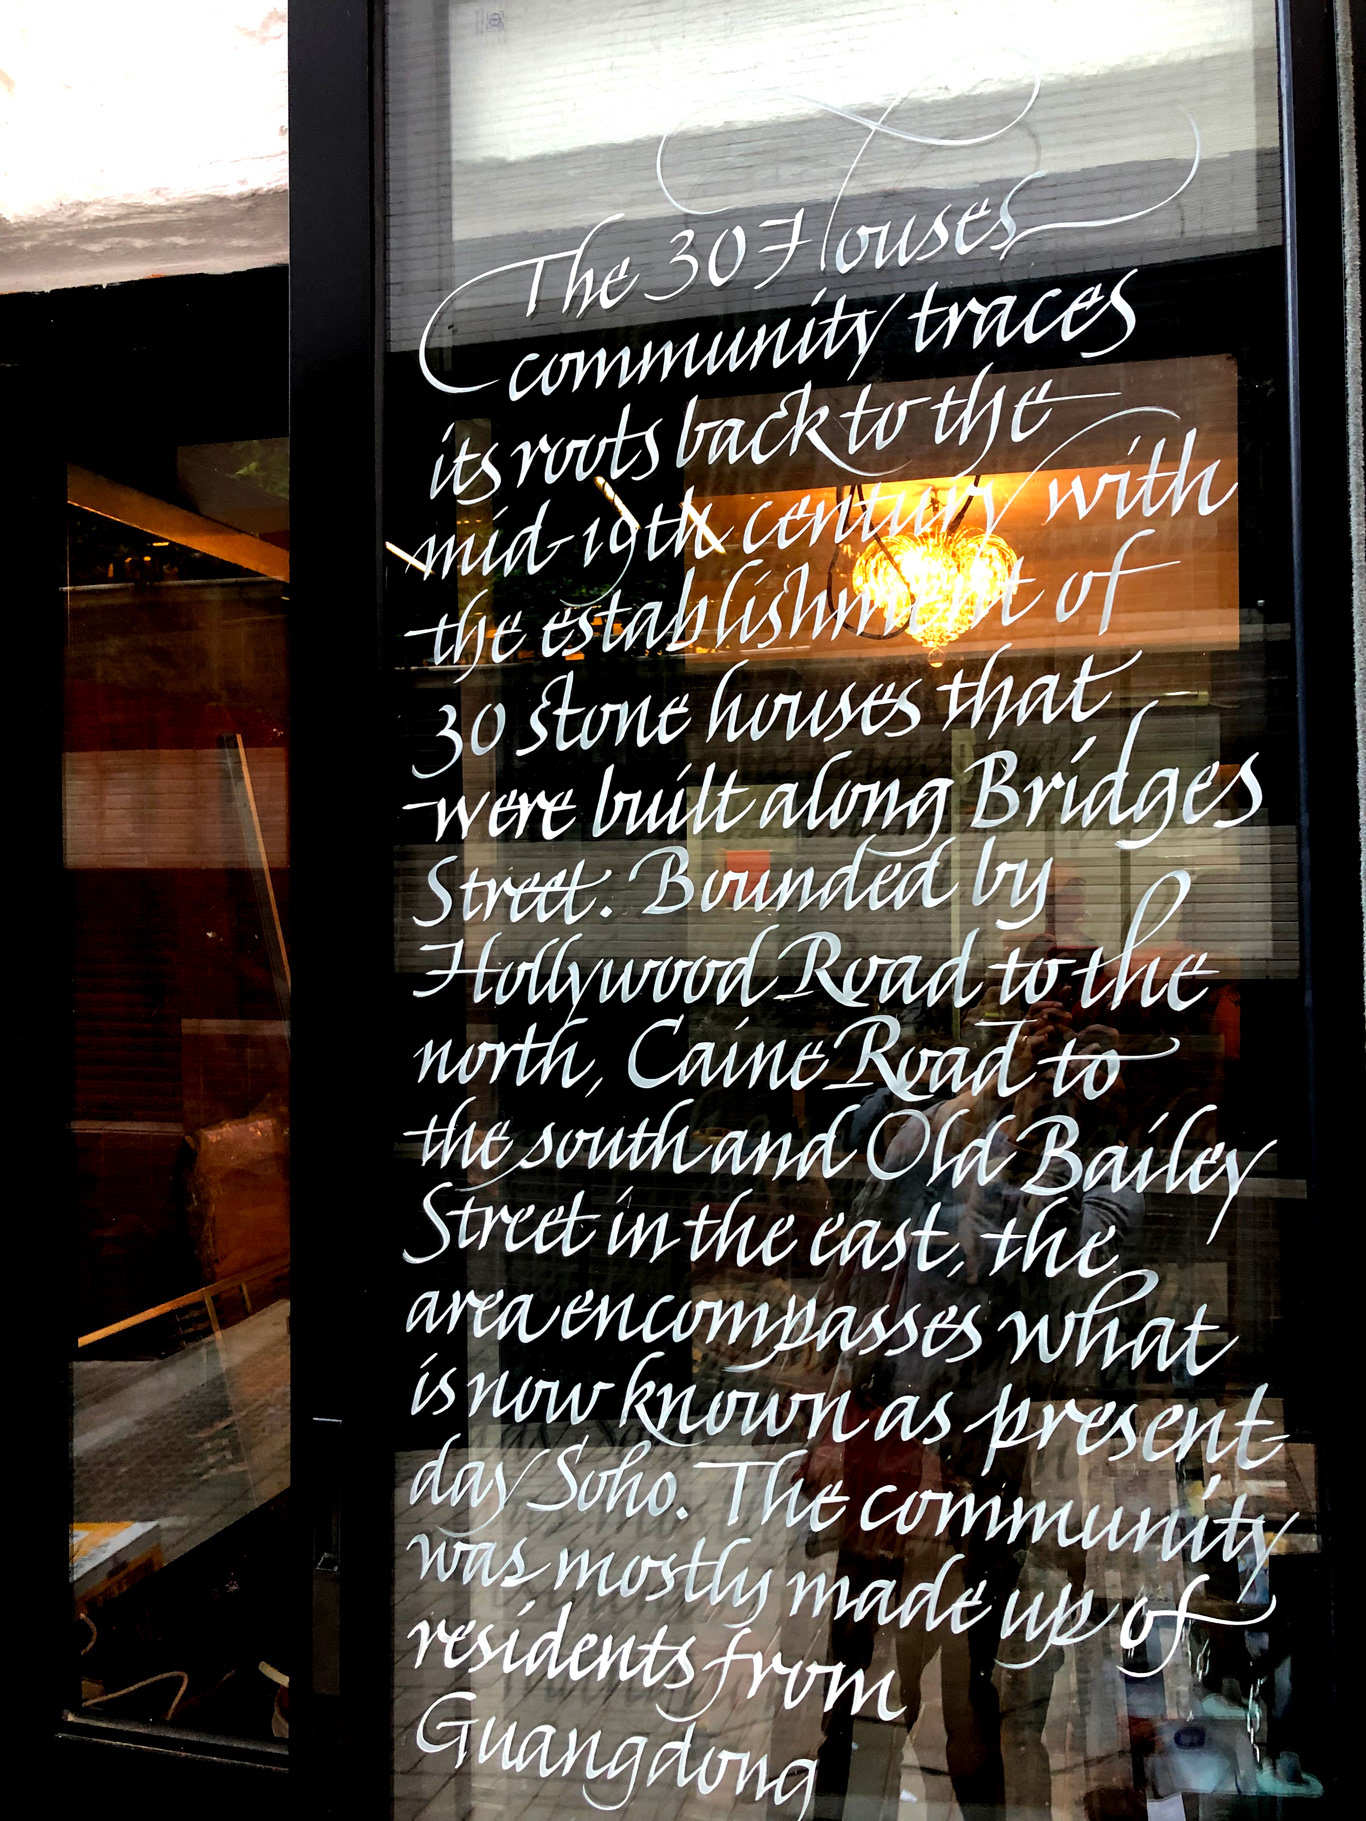 The 30 Houses
community traces
its roots back to the
mid-19th century with
the establishment of
30 stone houses that
were built along Bridges
Street. Bounded by
Hollywood Road to the
north, Caine Road to
the south and Old Bailey
Street in the east, the
area encompasses what
is now known as present-
day Soho. The community
was mostly made up of
residents from
Guangdong